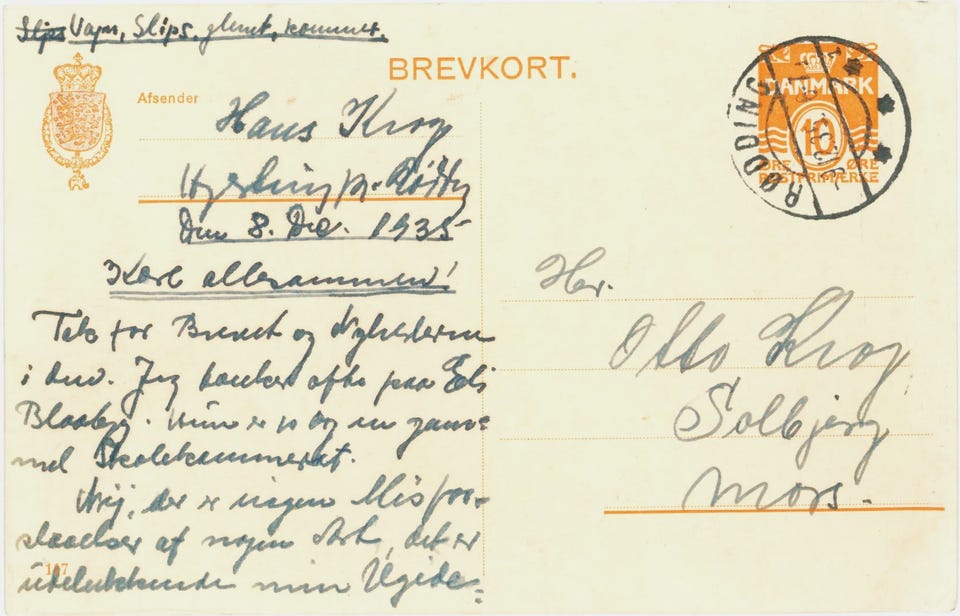 Slips Vajm, Slips, glemt, kommer.
BREVKORT.
Afsender
Hans Krog
Hjerting pr. Rødding
Den 8. Dec. 1935
Kære allesammen!
Tak for Brevet og Nyhederne
i det. Jeg tænker ofte paa Elis
Blaabjg. Hun er jo og en gam=
mel Skolekammerat.
Nej, der er ingen Misfor-
staaelser af nogen Art, det er
udelukkende min Ugide=
117
DANMARK
10
ØRE ØRE
POSTFRIMÆRKE
RØDDING
Hr.
Otto Krog
Solbjerg
Mors.